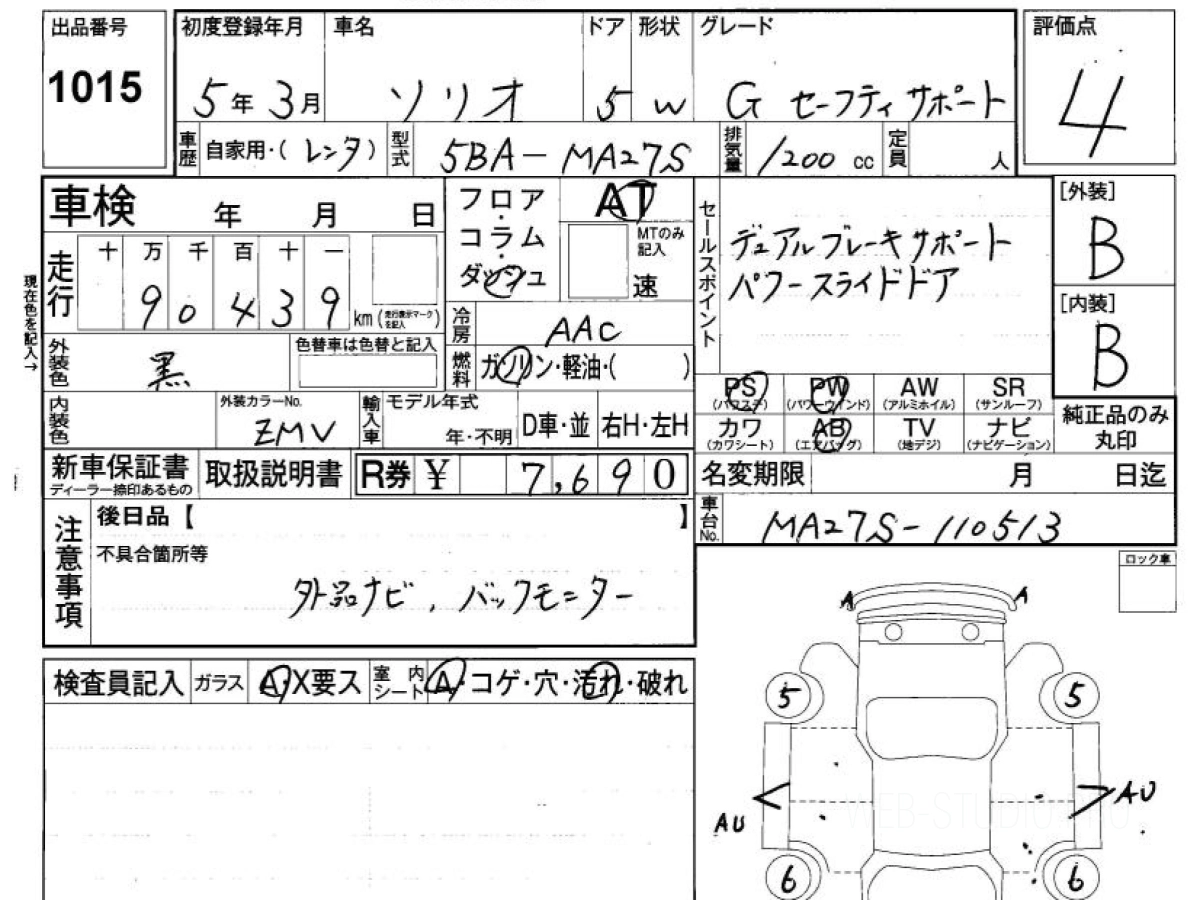 出品番号 初度登録年月 車名 ドア 形状 グレード 評価点
1015 5年 3月 ソリオ 5 W G セーフティサポート 4
車歴 自家用・( レンタ ) 型式 5BA-MA27S 排気量 1200 cc 定員 人
車検 年 月 日
フロア・コラム・ダッシュ
AT
MTのみ記入
速
セールスポイント
デュアルブレーキサポート
パワースライドドア
[外装]
B
[内装]
B
現在色を記入→
走行 十 万 千 百 十 一
9 0 4 3 9 km (走行表示マークを記入)
冷房 AAC
外装色 黒 色替車は色替と記入
燃料 ガソリン・軽油・( )
PS PW AW SR
(パワステ) (パワーウインド) (アルミホイル) (サンルーフ)
カワ AB TV ナビ
(カワシート) (エアバッグ) (地デジ) (ナビゲーション)
純正品のみ
丸印
内装色 外装カラーNo. ZMV 輸入車 モデル年式 年・不明 D車・並 右H・左H
新車保証書 取扱説明書 R券 ¥ 7,690
ディーラー捺印あるもの
名変期限 月 日迄
車台No. MA27S-110513
注意事項
後日品【 】
不具合箇所等
外品ナビ, バックモニター
ロック車
検査員記入 ガラス A・X要ス 室内シート A コゲ・穴・汚れ・破れ
A A
5 5
AU AU
WEB-STUDIO
6 6